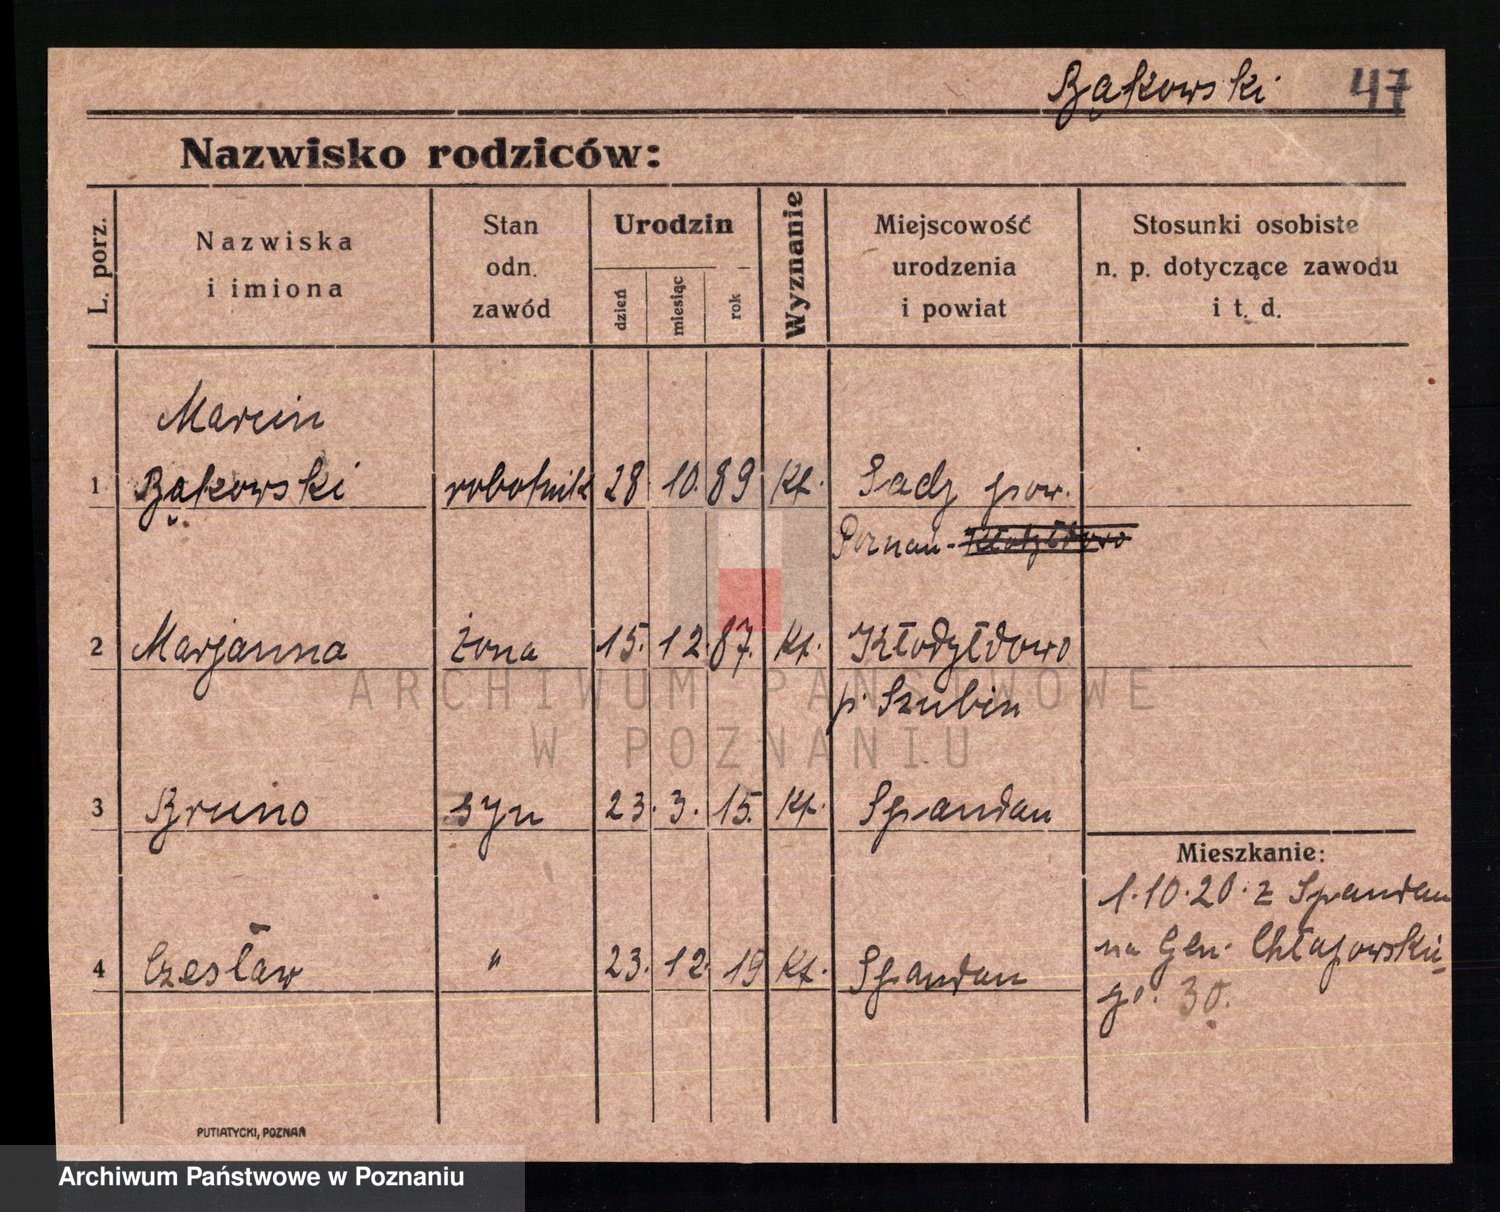 Bąkowski 47
Nazwisko rodziców:
L. porz.
Nazwiska
i imiona
Stan
odn.
zawód
Urodzin
dzień
miesiąc
rok
Wyznanie
Miejscowość
urodzenia
i powiat
Stosunki osobiste
n. p. dotyczące zawodu
i t. d.
Marcin
1 Bąkowski robotnik 28. 10. 89 Kt. Sady pow.
Poznań -
2 Marjanna żona 15. 12. 87. Kt. Kłodzłdowo
p. Szubin
3 Bruno syn 23. 3. 15. Kt. Spandau
Mieszkanie:
1.10.20. z Spandau
na Gen. Chłapowskie-
go. 30.
4 Czesław " 23. 12. 19 Kt. Spandau
ARCHIWUM PAŃSTWOWE
W POZNANIU
PUTIATYCKI, POZNAŃ
Archiwum Państwowe w Poznaniu